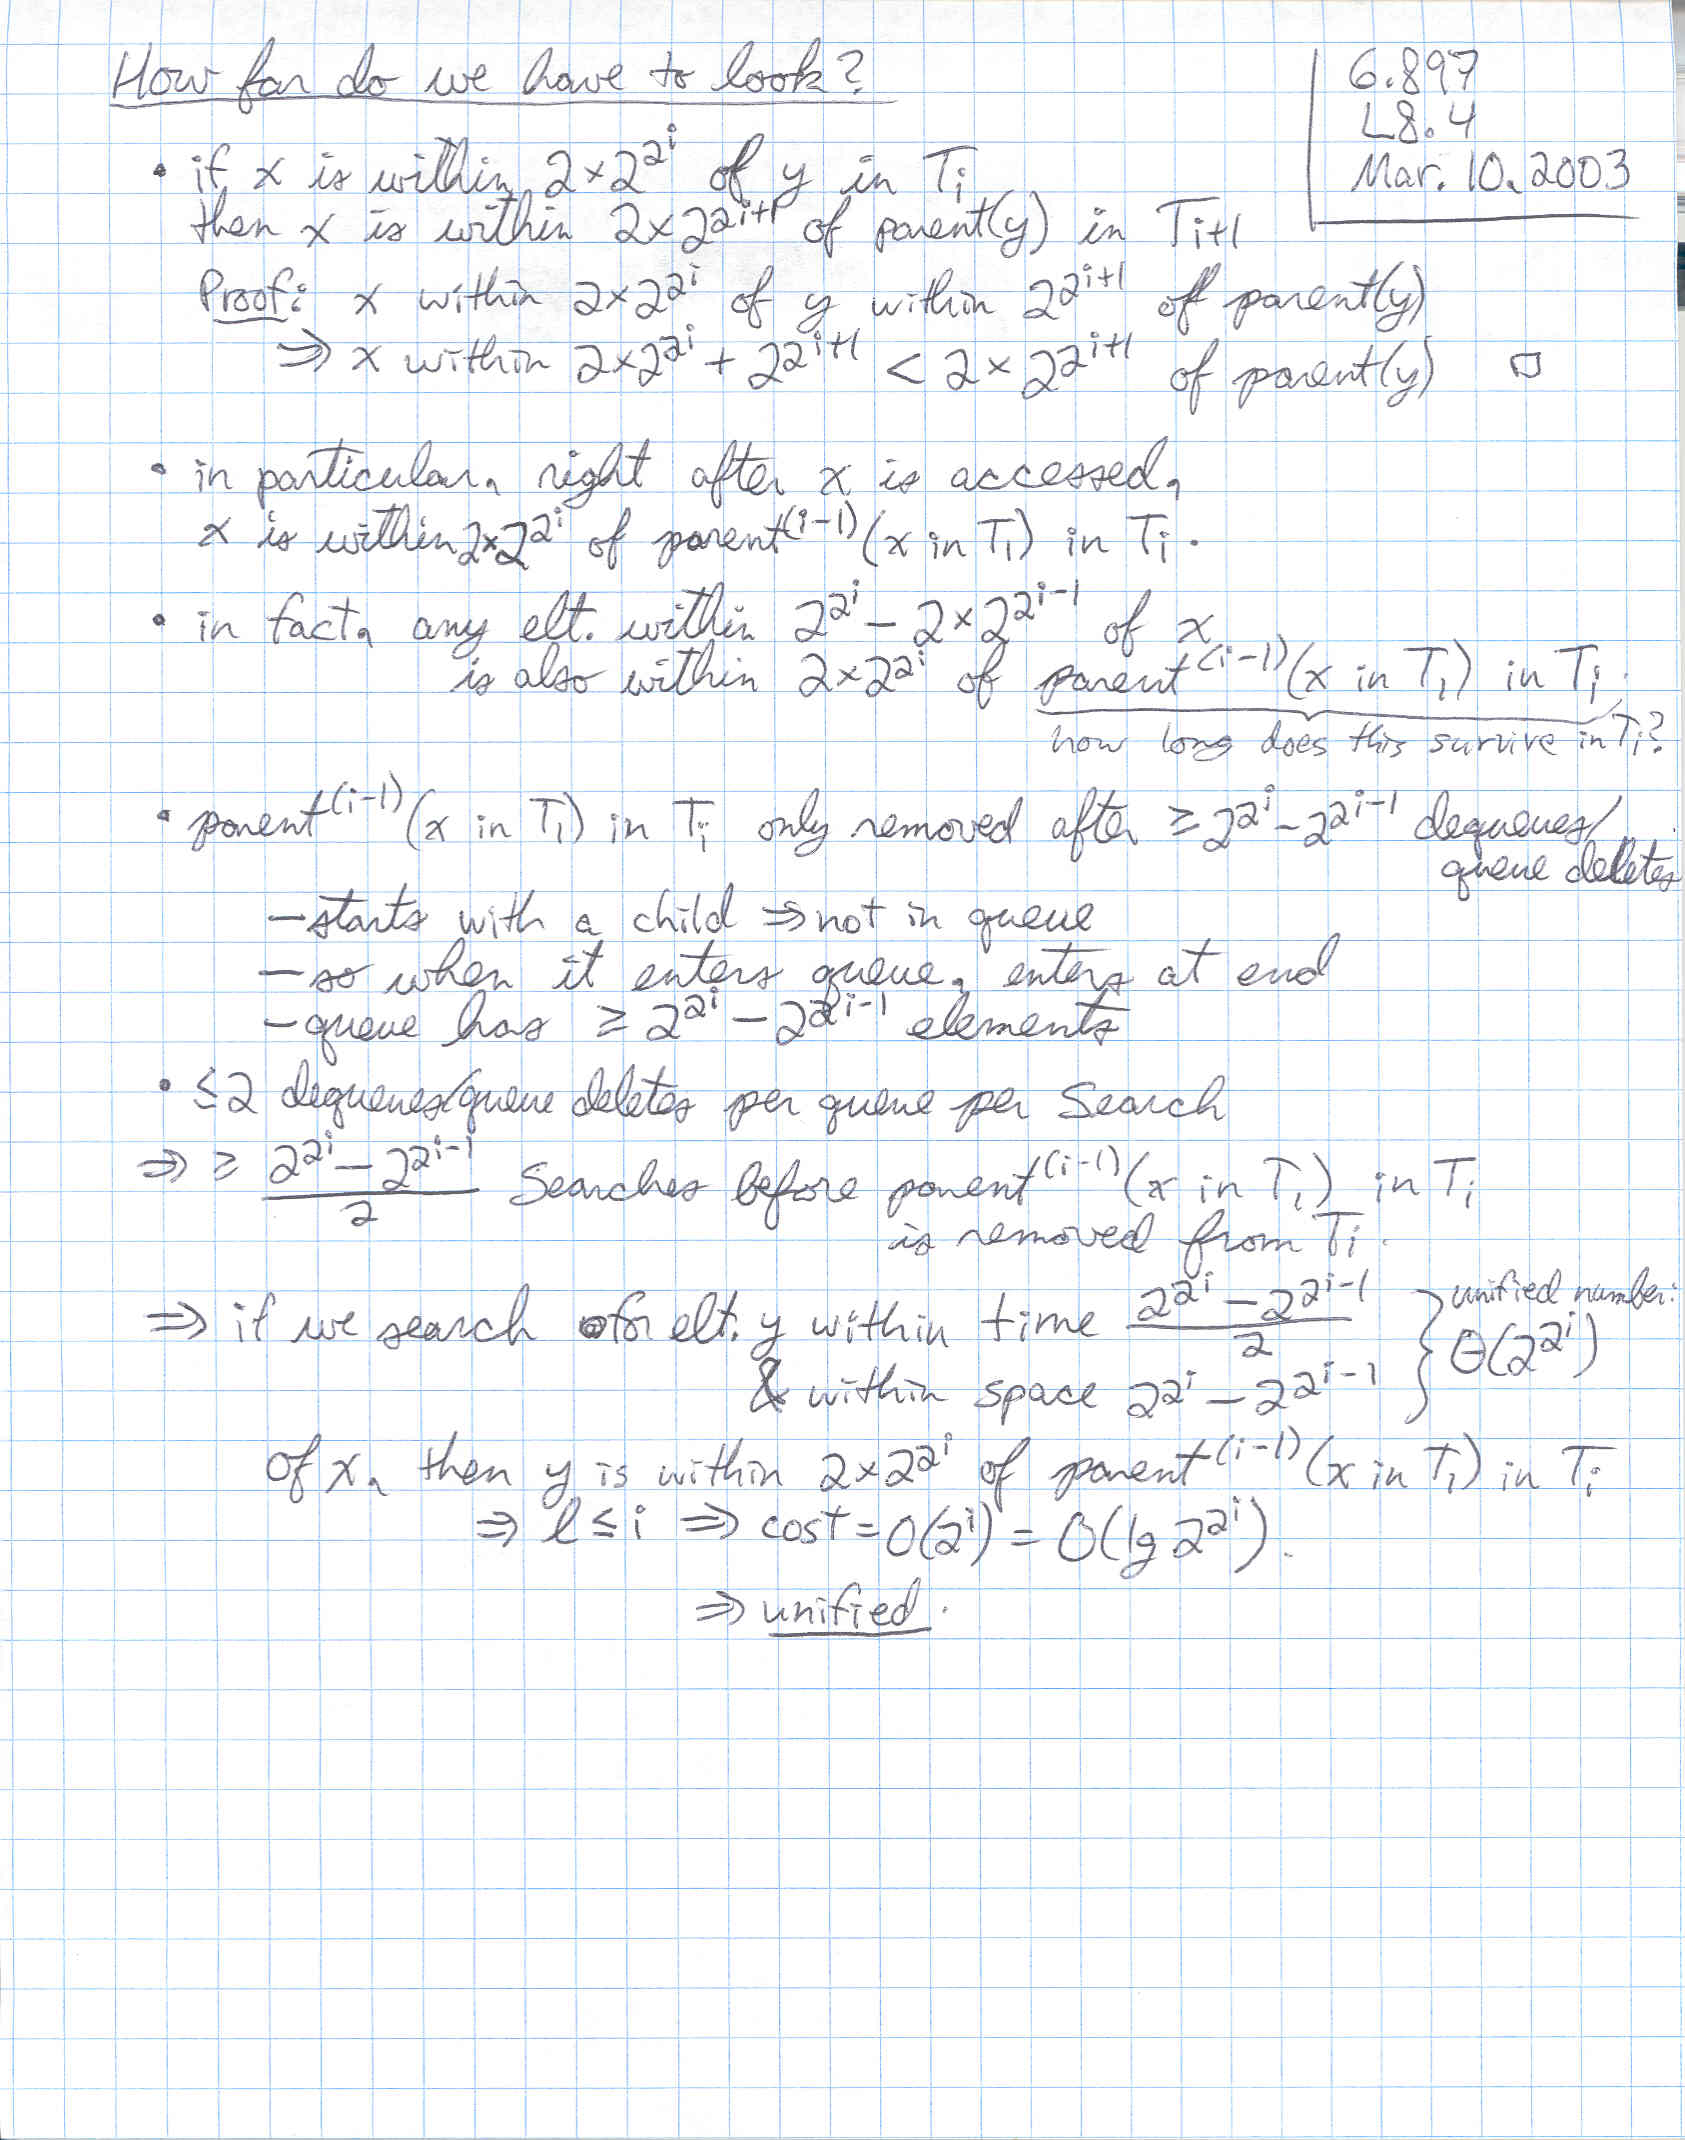 How far do we have to look?
6.897
L8.4
Mar. 10, 2003
• if x is within 2×2^{2^i} of y in T_i
then x is within 2×2^{2^{i+1}} of parent(y) in T_{i+1}
Proof: x within 2×2^{2^i} of y within 2^{2^{i+1}} of parent(y)
⇒ x within 2×2^{2^i} + 2^{2^{i+1}} < 2×2^{2^{i+1}} of parent(y) □
• in particular, right after x is accessed,
x is within 2×2^{2^i} of parent^{(i-1)}(x in T_1) in T_i.
• in fact, any elt. within 2^{2^i} − 2×2^{2^{i-1}} of x
is also within 2×2^{2^i} of parent^{(i-1)}(x in T_1) in T_i.
how long does this survive in T_i?
• parent^{(i-1)}(x in T_1) in T_i only removed after ≥ 2^{2^i} − 2^{2^{i-1}} dequeues/
queue deletes
– starts with a child ⇒ not in queue
– so when it enters queue, enters at end
– queue has ≥ 2^{2^i} − 2^{2^{i-1}} elements
• ≤2 dequeues/queue deletes per queue per Search
⇒ ≥ (2^{2^i} − 2^{2^{i-1}})/2 Searches before parent^{(i-1)}(x in T_1) in T_i
is removed from T_i.
⇒ if we search for elt. y within time (2^{2^i} − 2^{2^{i-1}})/2 } unified number:
& within space 2^{2^i} − 2^{2^{i-1}} } Θ(2^{2^i})
of x, then y is within 2×2^{2^i} of parent^{(i-1)}(x in T_1) in T_i
⇒ l ≤ i ⇒ cost = O(2^i) = O(lg 2^{2^i}).
⇒ unified.